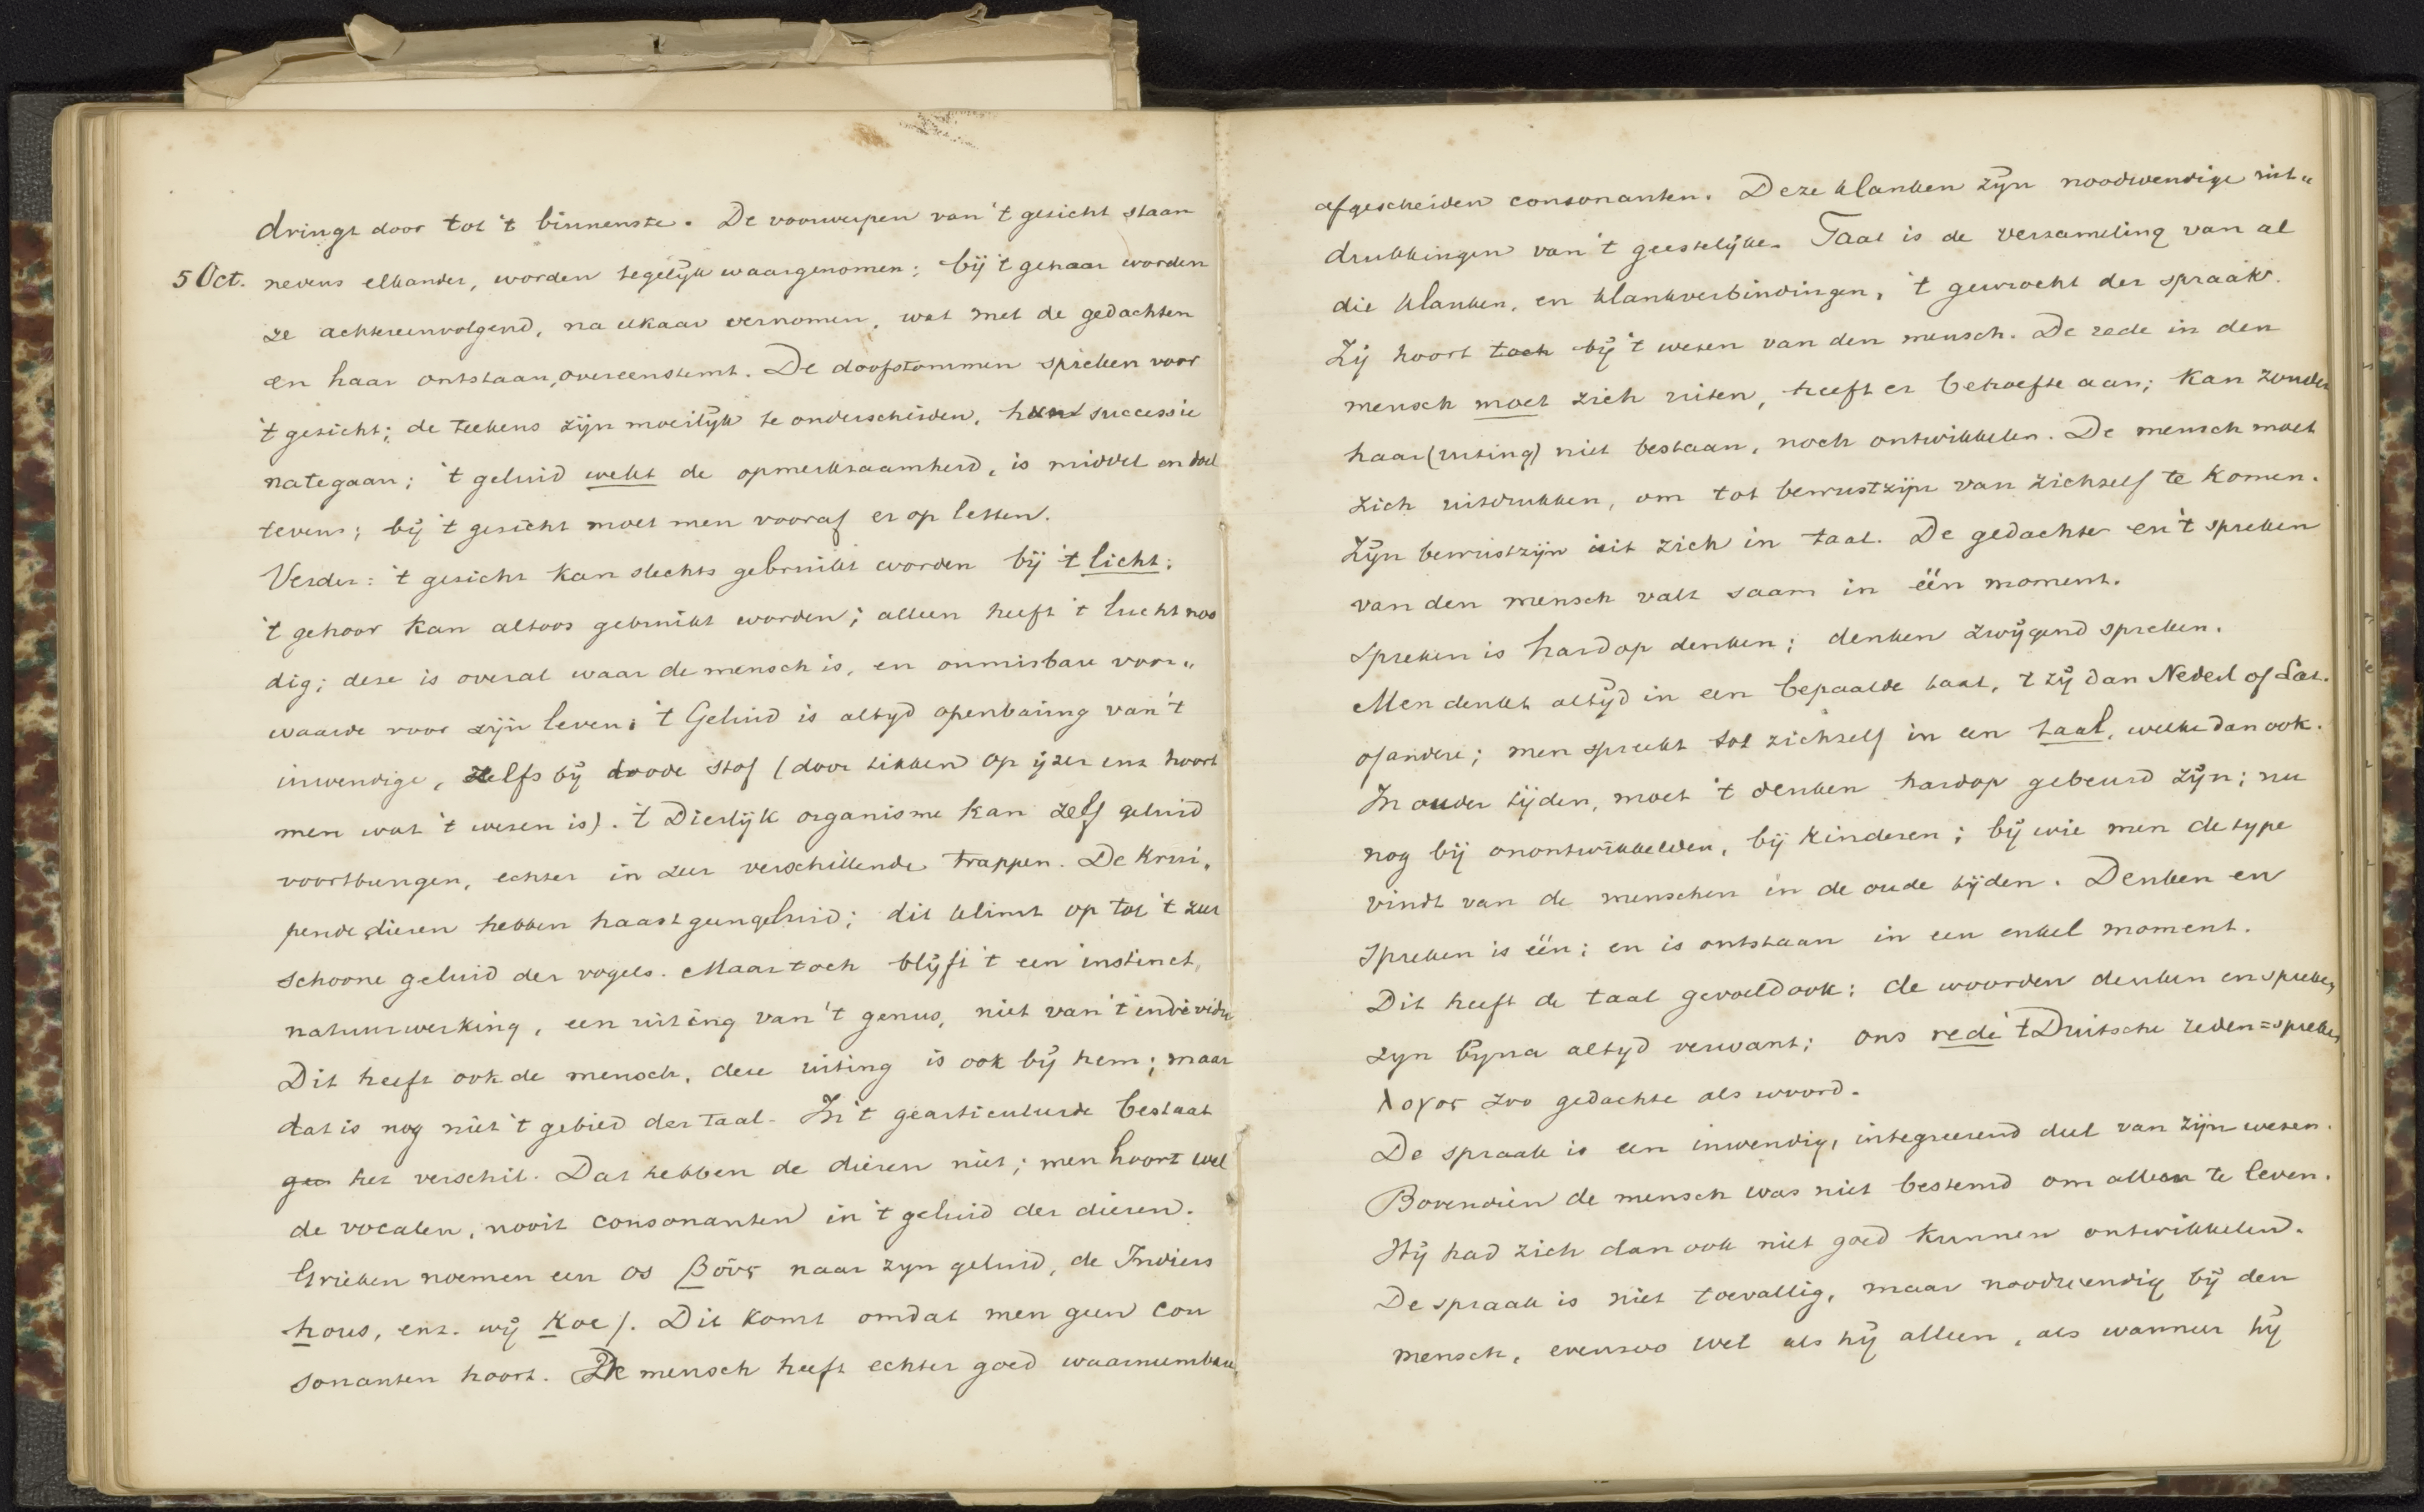 dringt door tot 't binnenste. De voorwerpen van 't gesicht staan
5 Oct. nevens elkander, worden tegelijk waargenomen; bij 't gehoor worden
ze achtereenvolgend, na elkaar vernomen, wat met de gedachten
en haar ontstaan, overeenstemt. De doofstommen spreken voor
't gesicht; de teekens zijn moeilijk te onderscheiden, hun successie
nategaan; 't geluid wekt de opmerksaamheid, is middel en doel
tevens; bij 't gesicht moet men vooraf er op letten.
Verder: 't gesicht kan slechts gebruikt worden bij 't licht;
't gehoor kan altoos gebruikt worden; alleen heeft 't lucht noo
dig; dese is overal waar de mensch is, en onmisbare voor„
waarde voor zijn leven; 't Geluid is altyd openbaring van 't
inwendige, zelfs bij doode stof (door tikken op ijzer enz hoort
men wat 't wesen is). 't Dierlijk organisme kan zelf geluid
voortbrengen, echter in zeer verschillende trappen. De krui„
pende dieren hebben haast geen geluid; dit klimt op tot 't zeer
schoone geluid der vogels. Maar toch blijft 't een instinct,
natuurwerking, een uiting van 't genus, niet van 't individu
Dit heeft ook de mensch, dese uiting is ook bij hem; maar
dat is nog niet 't gebied der taal. In 't gearticuleerde bestaat
gee het verschil. Dat hebben de dieren niet; men hoort wel
de vocalen, nooit consonanten in 't geluid der dieren.
Grieken noemen een os βοῦς naar zyn geluid, de Indiers
hous, enz. wij Koe). Dit komt omdat men geen con
sonanten hoort. De mensch heeft echter goed waarneembare,
afgescheiden consonanten. Deze klanken zijn noodwendige uit„
drukkingen van 't geestelijke. Taal is de versameling van al
die klanken, en klankverbindingen, 't gewrocht der spraak.
Zij hoort toch bij 't wesen van den mensch. De rede in den
mensch moet zich uiten, heeft er behoefte aan; kan zonder
haar (uiting) niet bestaan, noch ontwikkelen. De mensch moet
zich uitdrukken, om tot bewustzijn van zichzelf te komen.
Zijn bewustzijn uit zich in taal. De gedachte en 't spreken
van den mensch valt saam in één moment.
Spreken is hardop denken; denken zwijgend spreken.
Men denkt altijd in een bepaalde taal, 't zij dan Nederl of Lat.
of andere; men spreekt tot zichzelf in een taal, welke dan ook.
In ouder tijden, moet 't denken hardop gebeurd zijn; nu
nog bij onontwikkelden, bij kinderen; bij wie men de type
vindt van de menschen in de oude tijden. Denken en
spreken is één; en is ontstaan in een enkel moment.
Dit heeft de taal gevoeld ook; de woorden denken en spreken
zyn byna altyd verwant; ons rede 't Duitsche reden=spreken
λογος zoo gedachte als woord.
De spraak is een inwendig, integreerend deel van zijn wesen.
Bovendien de mensch was niet bestemd om alleen te leven.
Hij had zich dan ook niet goed kunnen ontwikkelen.
De spraak is niet toevallig, maar noodwendig bij den
mensch, evenzoo wel als hij alleen, als wanneer hij